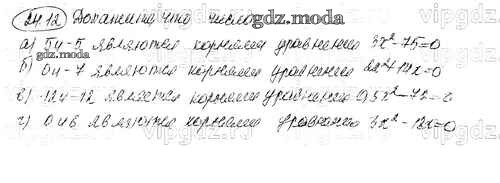 24.12 Докажите, что число gdz.moda
а) 5 и -5 являются корнями уравнения 3x²-75=0
б) 0 и -7 являются корнями уравнения 2x²+14x=0
в) -12 и -12 являются корнями уравнения 0,5x²-72=
г) 0 и 6 являются корнями уравнения 3x²-18x=0
gdz.moda
vipgdz.com
vipgdz.com
vipgdz.com